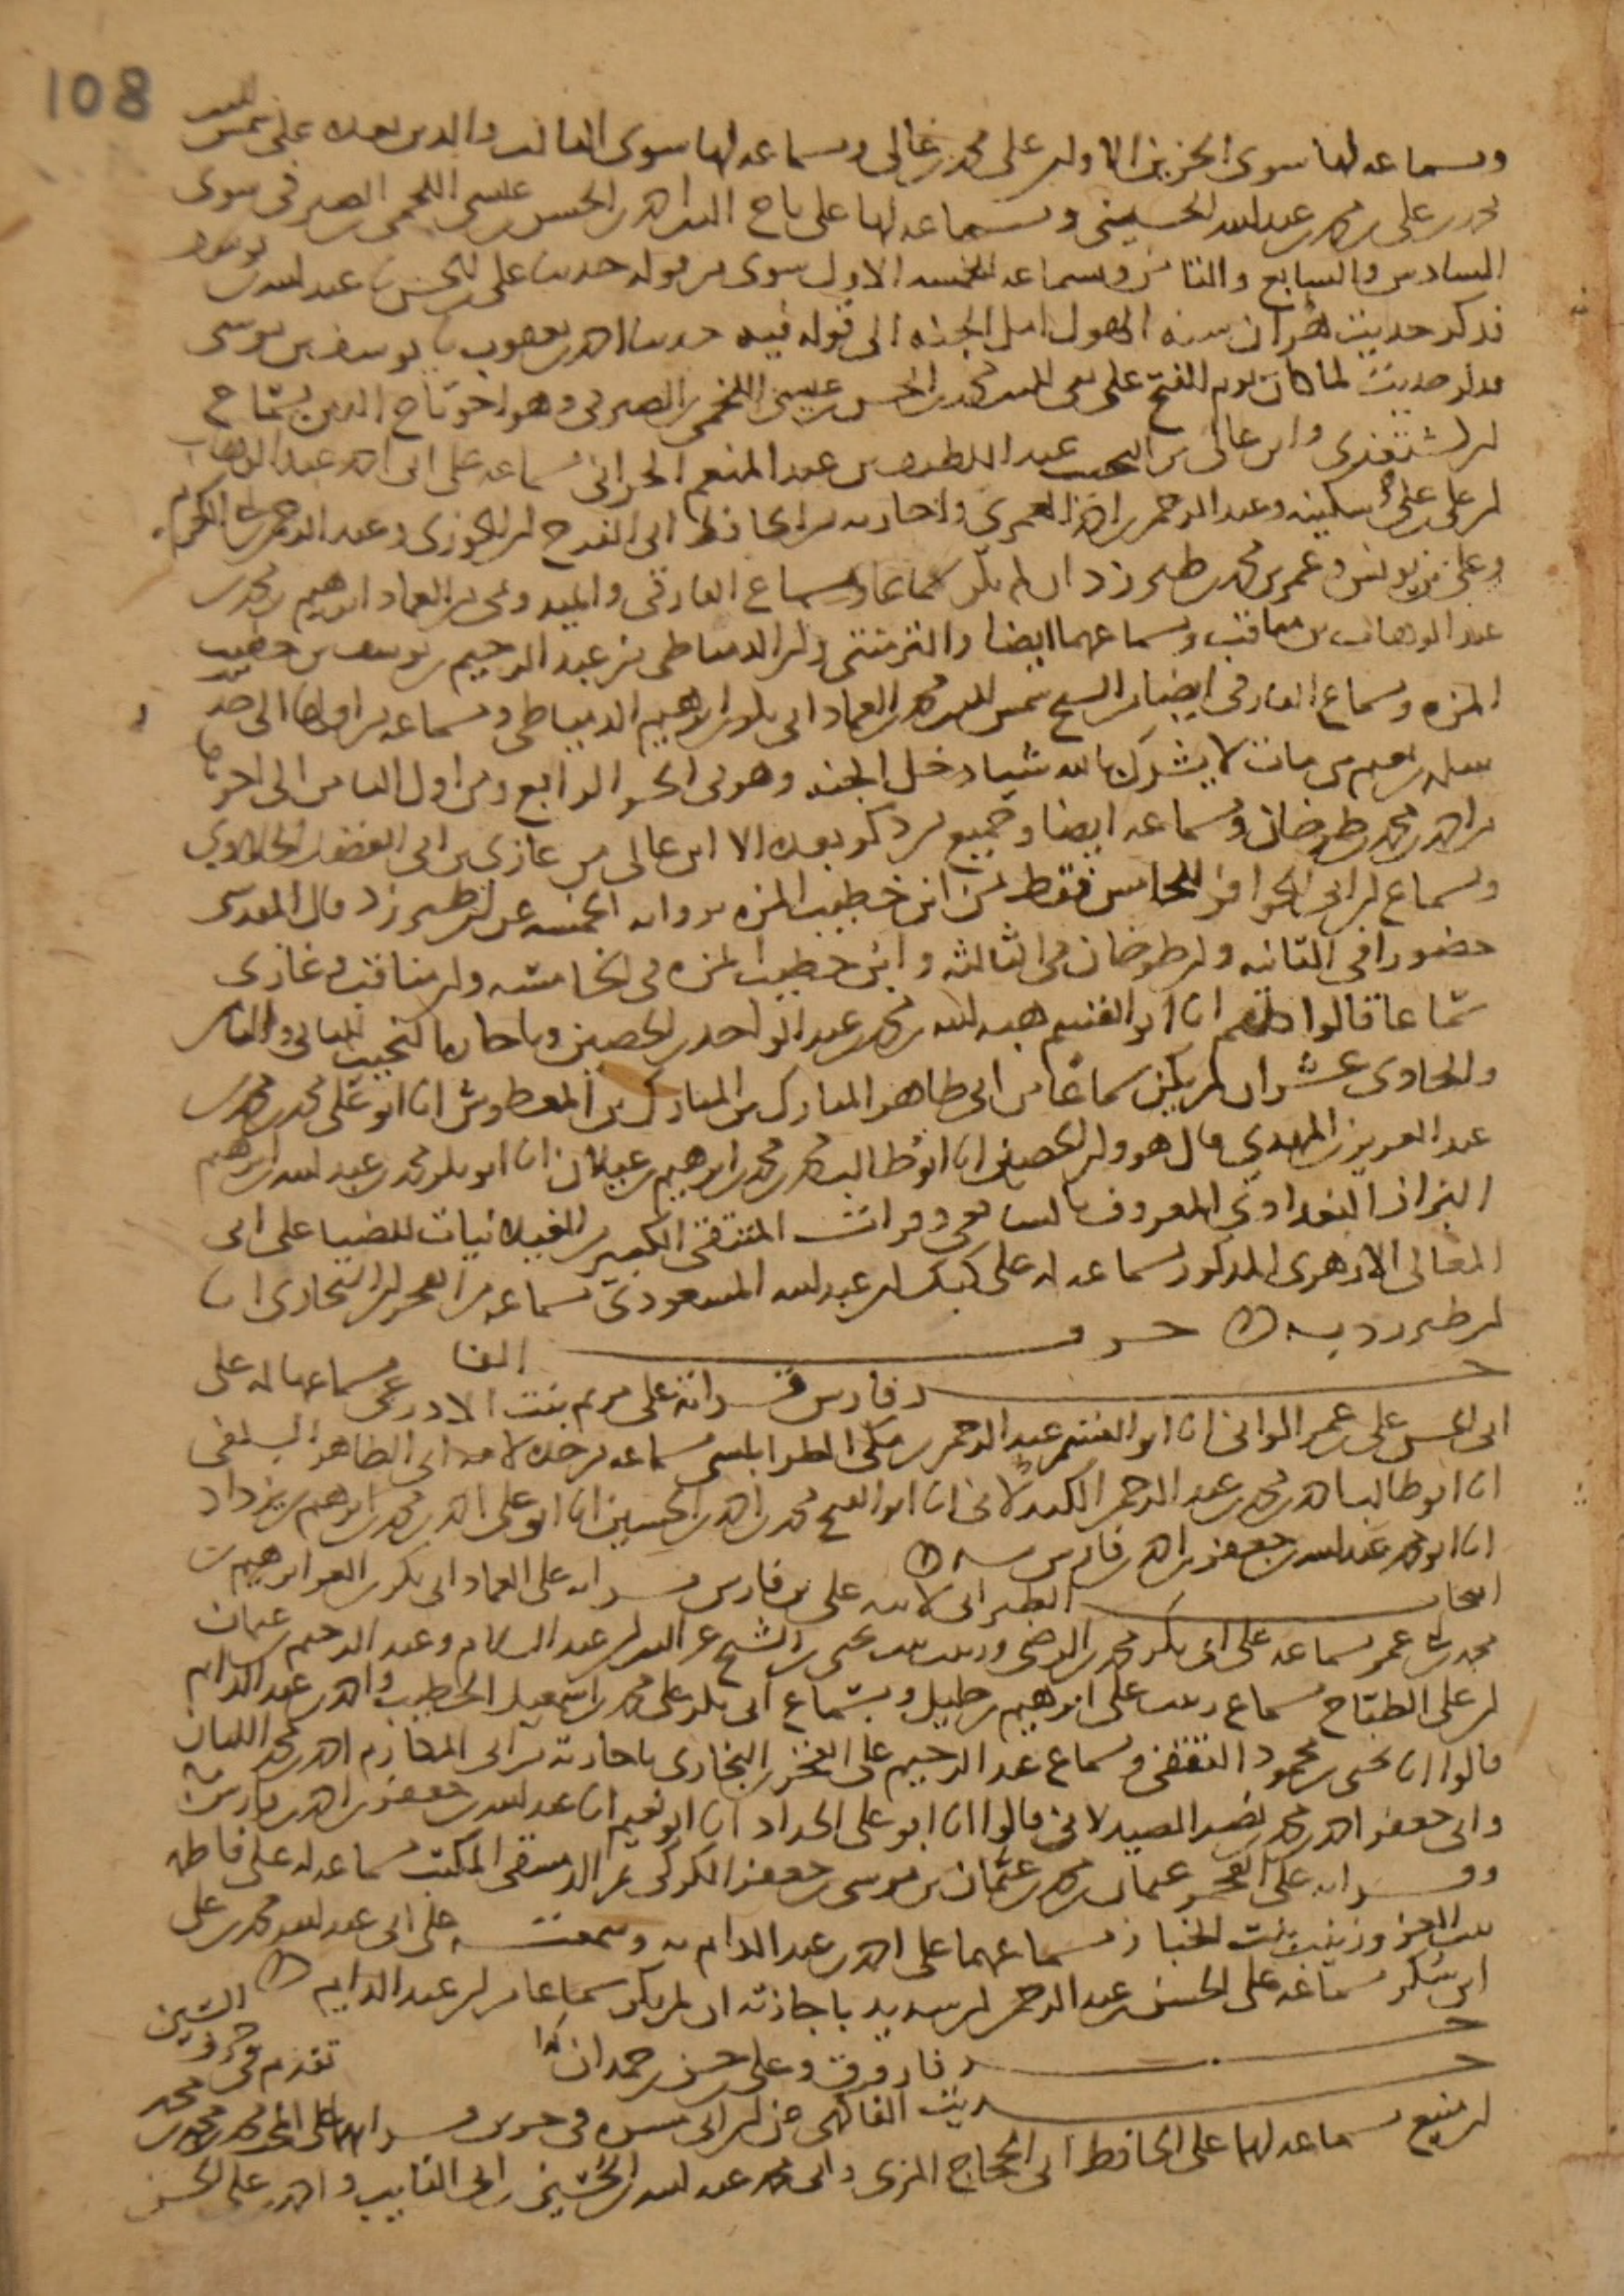 108
وسماعه لها سوى الجزئين الاولين على محمد بن غالي وسماعه لها سوى الثالث والذي بعده على شمس الدين
محمد بن علي بن محمد بن عبد الله الحسيني وسماعه لها على تاج الدين احمد بن الحسن بن عيسى اللخمي الصيرفي سوى
السادس والسابع والثامن وسماعه للخمسة الاول سوى من قوله حديث علي بن الحسن بن عبد الله بن
فذكر حديث الى قوله فيه حدثنا احمد بن يعقوب يوسف بن موسى
فذكر حديث لما كان يوم الفتح على تقي الدين محمد بن الحسن بن عيسى اللخمي الصيرفي وهو اخو تاج الدين بسماع
ابن الششتغذي وابن غالي من النجيب عبد اللطيف بن عبد المنعم الحراني بسماعه على ابي احمد عبد الوهاب
ابن علي بن علي بن سكينه وعبد الرحمن بن احمد العمري واجازته من الحافظ ابي الفرج ابن الجوزي وعبد الرحمن بن
وعلي بن يونس وعمر بن محمد بن طبرزد ان لم يكن سماعا وسماع الفارقي والميد ومي من العماد ابراهيم بن محمد بن
عبد الوهاب بن مناقب وسماعهما ايضا والتزمنتي وابن الدمياطي من عبد الرحيم بن يوسف بن خطيب
المزه وسماع الفارقي ايضا من الشيخ شمس الدين محمد بن العماد ابي بكر بن ابراهيم الدمياطي وسماعه من اولها الى حديث
سلمه بن نعيم من مات لا يشرك بالله شيا دخل الجنه وهو في الجزو الرابع ومن اول الثامن الى اخرها
من احمد بن محمد بن طرخان وسماعه ايضا وجميع من ذكر بعده الا ابن غالي من غازي بن ابي الفضل الحلاوي
وسماع ابن ابي الحوافر للخامس فقط من ابن خطيب المزه برواية الخمسه عن ابن طبرزد قال المقدسي
حضورا في الثانيه وابن طرخان في الثالثه وابن خطيب المزه في الخامسه وابن مناقب وغازي
سماعا قالوا كلهم انا ابو القسم هبه الله بن محمد بن عبد الواحد بن الحصين وباجازة النجيب للثاني والثامن
والحادي عشر ان لم يكن سماعا من ابي طاهر المبارك بن المبارك بن المعطوش انا ابو علي محمد بن محمد بن
عبد العزيز المهدي قال هو وابن الحصين انا ابو طالب محمد بن محمد بن ابراهيم بن غيلان انا ابو بكر محمد بن عبد الله بن ابراهيم
البزاز البغدادي المعروف بالشافعي وقرات المنتقى الكبير من الغيلانيات للضيا على ابي
المعالي الازهري المذكور بسماعه له على كبكلدي بن عبد الله المسعودي بسماعه من الفخر ابن البخاري انا
ابن طبرزد به حرف الفا
جزء ابن فارس قرأته على مريم بنت الاذرعي بسماعها له على
ابي الحسن علي بن عمر الواني انا ابو القسم عبد الرحمن بن مكي الطرابلسي بسماعه من جده لامه ابي الطاهر السلفي
انا ابو طالب احمد بن محمد بن عبد الرحمن الكندلاني انا ابو الفتح محمد بن احمد بن الحسين انا ابو علي احمد بن محمد بن ابراهيم بن يزداد
انا ابو محمد عبد الله بن جعفر بن احمد بن فارس به
انتخاب الطبراني لابنه على بن فارس قرأته على العماد ابي بكر بن العز ابراهيم بن
محمد بن عمر بسماعه على ابي بكر بن محمد بن الرضي وزينب بنت يحيى بن الشيخ عز الدين ابن عبد السلام وعبد الرحيم بن عثمان
ابن علي الطباخ بسماع زينب على ابراهيم بن خليل وبسماع ابي بكر على محمد بن اسمعيل الخطيب واحمد بن عبد الدايم
قالوا انا يحيى بن محمود الثقفي وسماع عبد الرحيم على الفخر بن البخاري باجازته من ابي المكارم احمد بن محمد اللبان
وابي جعفر احمد بن محمد بن نصر الصيدلاني قالوا انا ابو علي الحداد انا ابو نعيم انا عبد الله بن جعفر بن احمد بن فارس به
وقرأته على الفخر عثمان بن محمد بن عثمان بن موسى بن جعفر الكركي ثم الدمشقي المكتب بسماعه له على فاطمه
بنت العز وزينب بنت الخباز بسماعهما على احمد بن عبد الدايم به وسمعته على ابي عبد الله محمد بن علي
ابن شكر بسماعه على الحسن بن عبد الرحمن ابن سديد باجازته ان لم يكن سماعا من ابن عبد الدايم
جزء ابن فاروق وعلي بن حسن بن حمدان كذا تقدم في حرف الشين
حديث الفاكهي عن ابن ابي مسره في جزو قرأته على ابي محمد بن محمد بن محمد
ابن منيع بسماعه لها على الحافظ ابي الحجاج المزي وابي محمد عبد الله بن الحسين بن ابي التايب واحمد بن علي بن الحسن